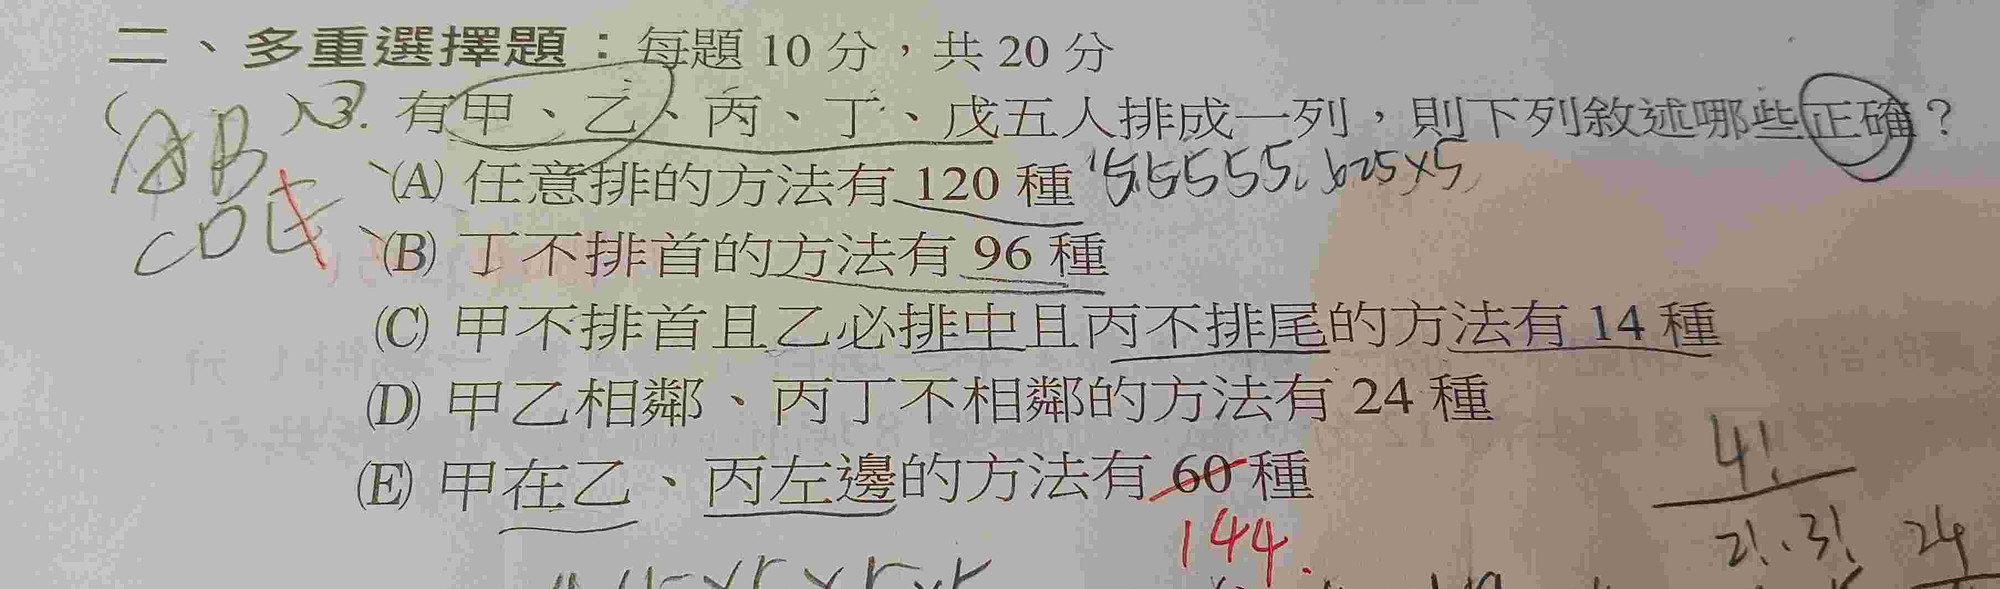 二、多重選擇題：每題 10 分，共 20 分
(AB )3. 有甲、乙、丙、丁、戊五人排成一列，則下列敘述哪些正確？
CDE
(A) 任意排的方法有 120 種 55555. 625×5
(B) 丁不排首的方法有 96 種
(C) 甲不排首且乙必排中且丙不排尾的方法有 14 種
(D) 甲乙相鄰、丙丁不相鄰的方法有 24 種
(E) 甲在乙、丙左邊的方法有 60 種
144
4!
2!·3! 24